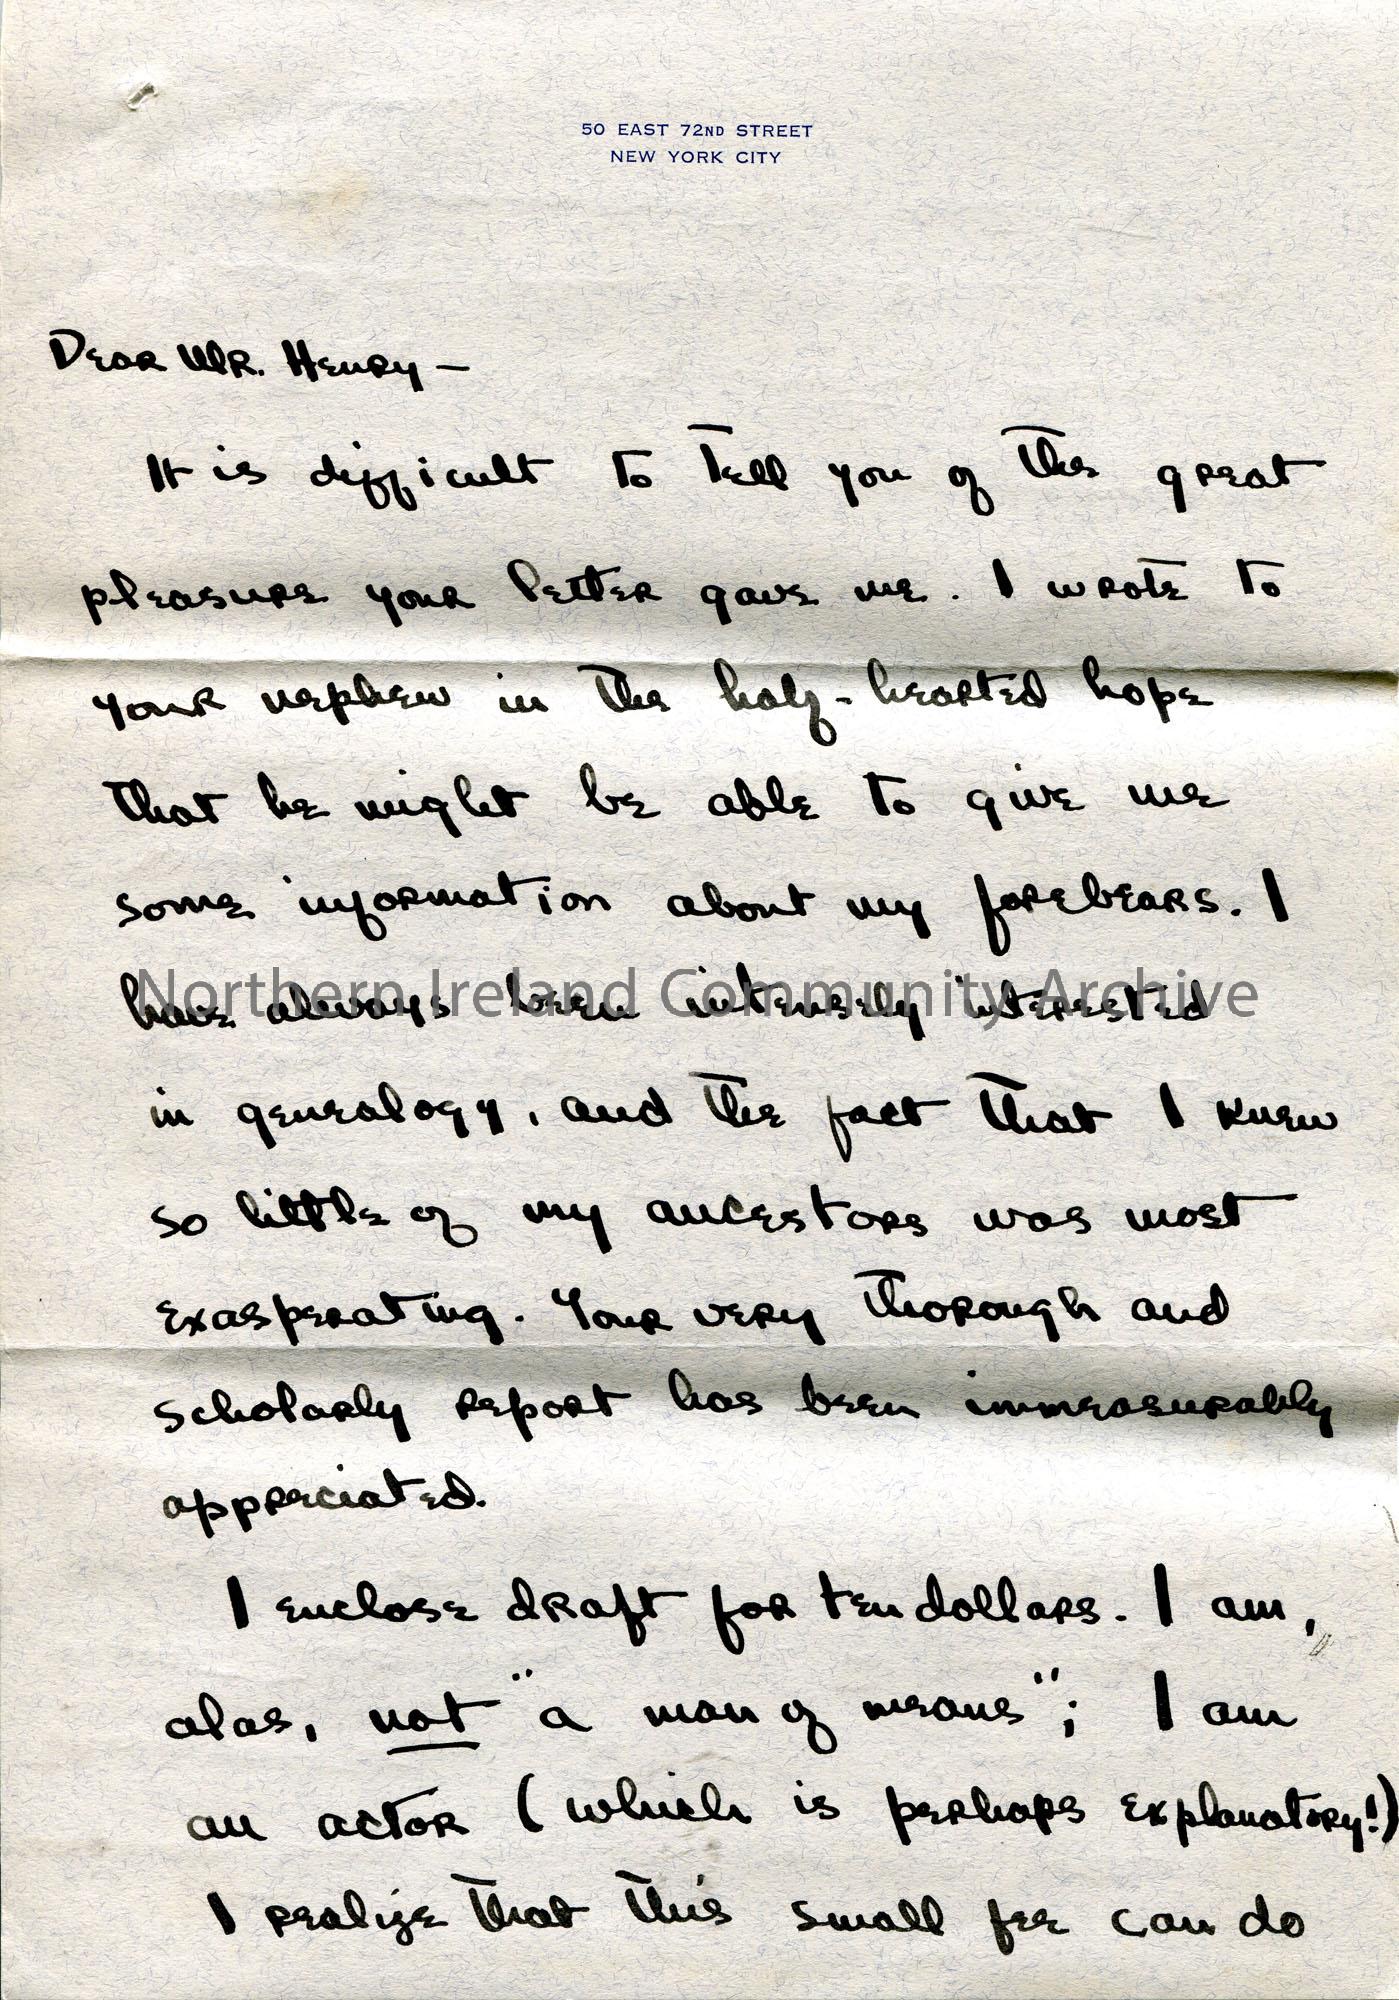 50 EAST 72ND STREET
NEW YORK CITY
Dear Mr. Henry —
It is difficult to tell you of the great
pleasure your letter gave me. I wrote to
your nephew in the half-hearted hope
that he might be able to give me
some information about my forebears. I
have always been intensely interested
Northern Ireland Community Archive
in genealogy, and the fact that I knew
so little of my ancestors was most
exasperating. Your very thorough and
scholarly report has been immeasurably
appreciated.
I enclose draft for ten dollars. I am,
alas, not "a man of means"; I am
an actor (which is perhaps explanatory!)
I realize that this small fee can do